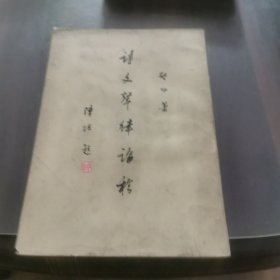 启功著
诗文声律论稿
陈垣题